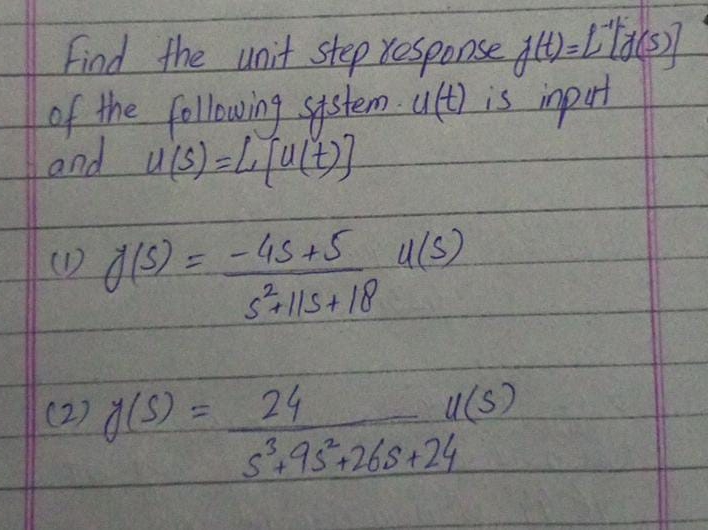 Find the unit step response y(t)=L⁻¹[y(s)]
of the following system. u(t) is input
and u(s)=L[u(t)]
(1) y(s) = -4s+5 u(s)
s²+11s+18
(2) y(s) = 24 u(s)
s³+9s²+26s+24